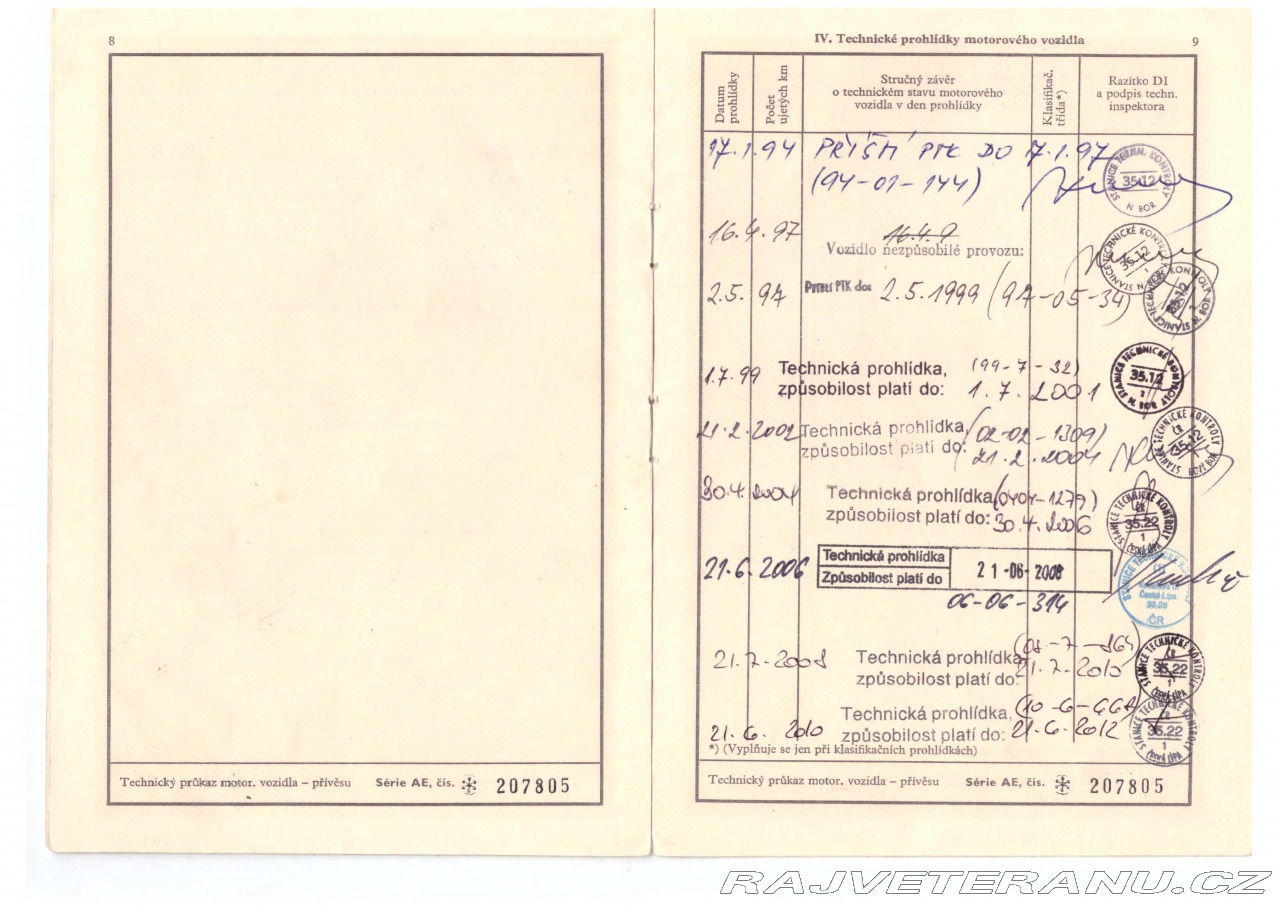 8
Technický průkaz motor. vozidla – přívěsu Série AE, čís. 207805
IV. Technické prohlídky motorového vozidla 9
Datum prohlídky
Počet ujetých km
Stručný závěr
o technickém stavu motorového
vozidla v den prohlídky
Klasifikač. třída*)
Razítko DI
a podpis techn.
inspektora
17.1.94 PŘÍŠTÍ PTK DO 17.1.97
(94-01-144)
STANICE TECHN. KONTROLY 35.12 N BOR
16.4.97 16.4.9
Vozidlo nezpůsobilé provozu:
STANICE TECHNICKÉ KONTROLY 35.12 1 N. BOR
2.5.97 PTK do: 2.5.1999 (97-05-34)
STANICE TECHN. KONTROLY N. BOR 35.12 2
1.7.99 Technická prohlídka, (99-7-32)
způsobilost platí do: 1.7.2001
STANICE TECHNICKÉ KONTROLY 35.12 2 N. BOR
21.2.2002 Technická prohlídka, (02-02-1309)
způsobilost platí do: 21.2.2004
STANICE TECHNICKÉ KONTROLY ČR 35.12 NOVÝ BOR
30.4.2004 Technická prohlídka, (0404-1279)
způsobilost platí do: 30.4.2006
STANICE TECHNICKÉ KONTROLY ČR 35.22 1 ČESKÁ LÍPA
21.6.2006 Technická prohlídka
Způsobilost platí do 21-06-2008
06-06-314
STANICE TECHNICKÉ Česká Lípa ČR
21.7.2008 Technická prohlídka,
způsobilost platí do: 21.7.2010
STANICE TECHNICKÉ KONTROLY ČR 35.22 1 ČESKÁ LÍPA
Technická prohlídka,
21.6.2010 způsobilost platí do: 21.6.2012
STANICE TECHNICKÉ KONTROLY 35.22 1 ČESKÁ LÍPA
*) (Vyplňuje se jen při klasifikačních prohlídkách)
Technický průkaz motor. vozidla – přívěsu Série AE, čís. 207805
RAJVETERANU.CZ